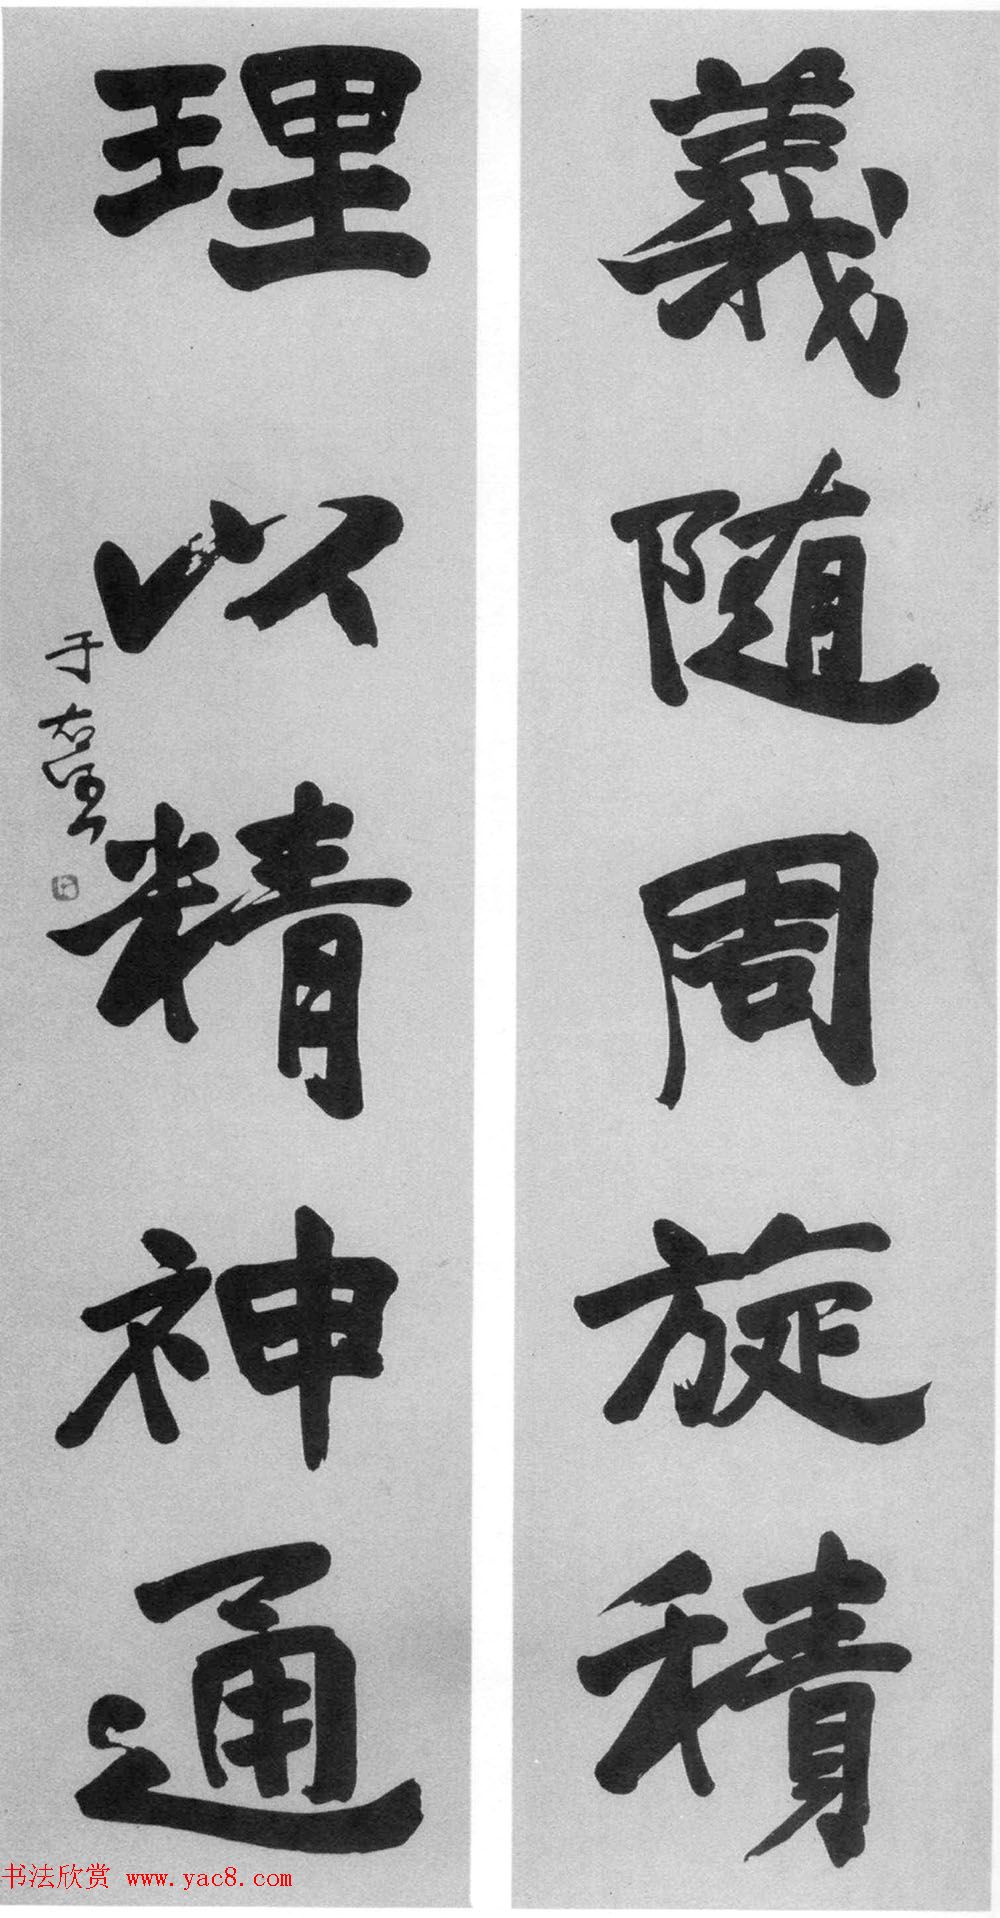 義随周旋積
理以精神通
于右任
书法欣赏 www.yac8.com